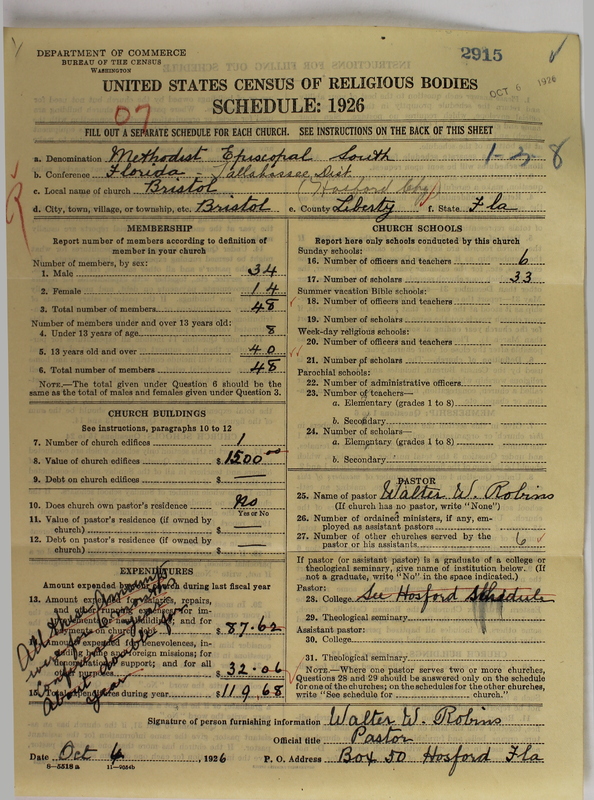 DEPARTMENT OF COMMERCE
BUREAU OF THE CENSUS
WASHINGTON
2915
OCT 6 1926
UNITED STATES CENSUS OF RELIGIOUS BODIES
SCHEDULE: 1926
07
FILL OUT A SEPARATE SCHEDULE FOR EACH CHURCH. SEE INSTRUCTIONS ON THE BACK OF THIS SHEET
a. Denomination Methodist Episcopal South
1-2-8
b. Conference Florida - Tallahassee Dist.
c. Local name of church Bristol (Hosford Chg)
d. City, town, village, or township, etc. Bristol e. County Liberty f. State Fla
MEMBERSHIP
Report number of members according to definition of member in your church
Number of members, by sex:
1. Male 34
2. Female 14
3. Total number of members 48
Number of members under and over 13 years old:
4. Under 13 years of age 8
5. 13 years old and over 40
6. Total number of members 48
NOTE.—The total given under Question 6 should be the
same as the total of males and females given under Question 3.
CHURCH BUILDINGS
See instructions, paragraphs 10 to 12
7. Number of church edifices 1
8. Value of church edifices $1500.00
9. Debt on church edifices $ —
10. Does church own pastor's residence No
Yes or No
11. Value of pastor's residence (if owned by
church) $ —
12. Debt on pastor's residence (if owned by
church) $ —
EXPENDITURES
Amount expended by your church during last fiscal year
13. Amount expended for salaries, repairs,
and other running expenses; for im-
provements or new buildings; and for
payment on church debt $87.62
14. Amount expended for benevolences, in-
cluding home and foreign missions; for
denominational support; and for all
other purposes $32.06
15. Total expenditures during year $119.68
All these amounts
were for 6 months
conference year
About double for
year
CHURCH SCHOOLS
Report here only schools conducted by this church
Sunday schools:
16. Number of officers and teachers 6
17. Number of scholars 33
Summer vacation Bible schools:
18. Number of officers and teachers
19. Number of scholars
Week-day religious schools:
20. Number of officers and teachers
21. Number of scholars
Parochial schools:
22. Number of administrative officers
23. Number of teachers—
a. Elementary (grades 1 to 8)
b. Secondary
24. Number of scholars—
a. Elementary (grades 1 to 8)
b. Secondary
PASTOR
25. Name of pastor Walter W. Robins
(If church has no pastor, write "None")
26. Number of ordained ministers, if any, em-
ployed as assistant pastors
27. Number of other churches served by the
pastor or his assistants 6
If pastor (or assistant pastor) is a graduate of a college or
theological seminary, give name of institution below. (If
not a graduate, write "No" in the space indicated.)
Pastor:
28. College See Hosford Schedule
29. Theological seminary
Assistant pastor:
30. College
31. Theological seminary
NOTE.—Where one pastor serves two or more churches,
Questions 28 and 29 should be answered only on the schedule
for one of the churches; on the schedules for the other churches,
write "See schedule for ........ church."
Signature of person furnishing information Walter W. Robins
Official title Pastor
Date Oct 6, 1926 P. O. Address Box 50 Hosford Fla
8—5518a 11—9054b